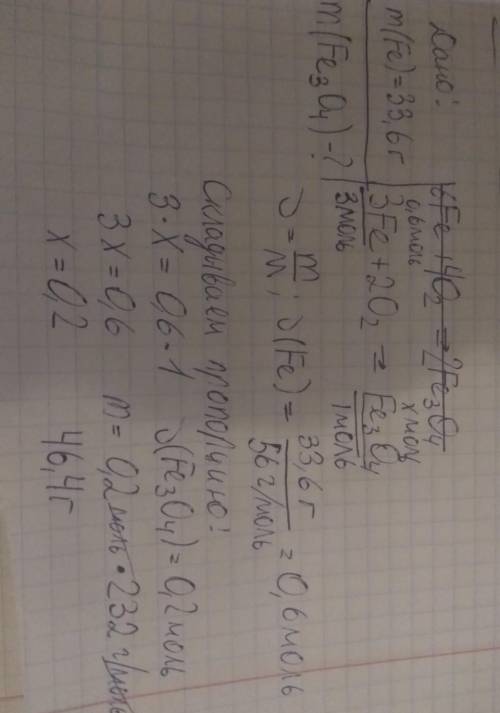 Дано:
m(Fe)=33,6 г
m(Fe3O4)-?
6Fe+4O2=2Fe3O4
0,6моль х моль
3Fe+2O2=Fe3O4
3моль 1моль
ν=m/M; ν(Fe)=33,6 г/56 г/моль=0,6моль
Складываем пропорцию!
3·X=0,6·1 ν(Fe3O4)=0,2моль
3X=0,6 m=0,2моль·232 г/моль
x=0,2 46,4г